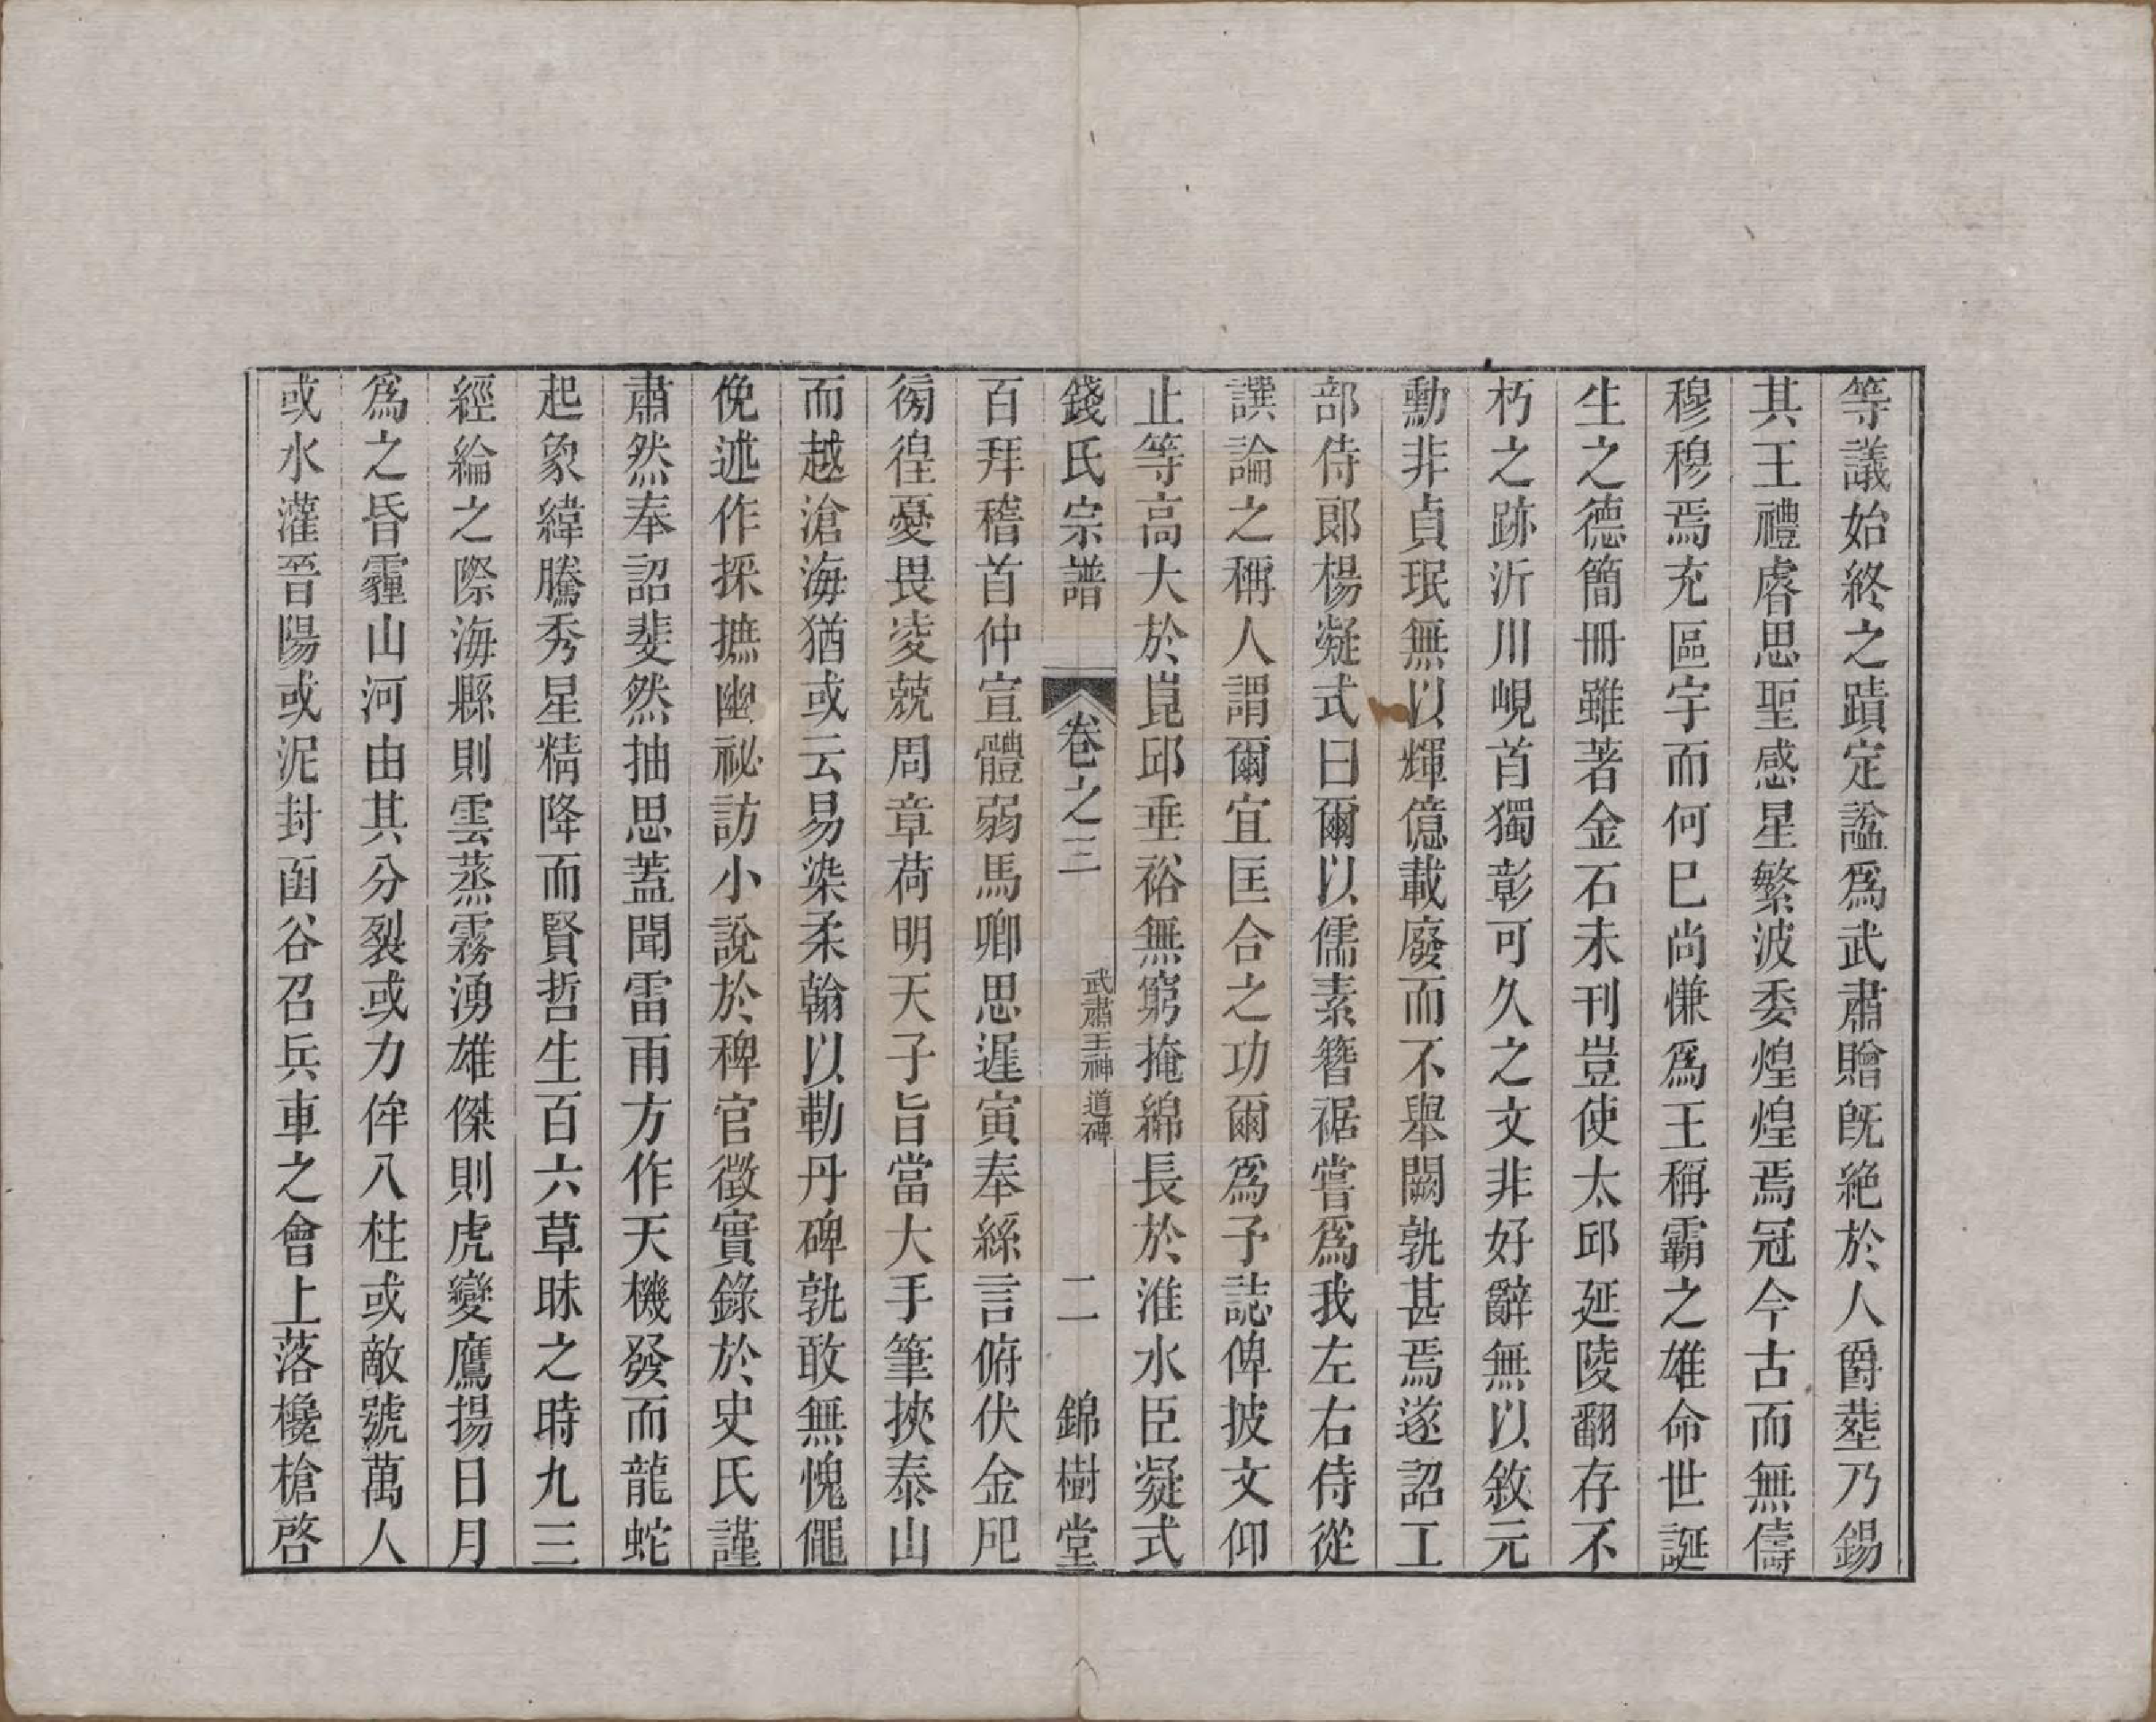 等議始終之蹟定諡爲武肅贈旣絶於人爵塟乃錫
其王禮睿思聖感星繁波委煌煌焉冠今古而無儔
穆穆焉充區宇而何巳尚慊爲王稱霸之雄命世誕
生之德簡冊雖著金石未刊豈使太邱延陵翻存不
朽之跡沂川峴首獨彰可久之文非好辭無以敘元
勳非貞珉無以輝億載廢而不舉闕孰甚焉遂詔工
部侍郞楊凝式曰爾以儒素簪裾嘗爲我左右侍從
譔論之稱人謂爾宜匡合之功爾爲予誌俾披文仰
止等高大於崑邱垂裕無窮掩綿長於淮水臣凝式
錢氏宗譜 卷之三 武肅王神道碑 二 錦樹堂
百拜稽首仲宣體弱馬卿思遲寅奉絲言俯伏金戺
徬徨憂畏凌兢周章荷明天子旨當大手筆挾泰山
而越滄海猶或云易染柔翰以勒丹碑孰敢無愧僶
俛述作採摭幽祕訪小說於稗官徵實錄於史氏謹
肅然奉詔斐然抽思蓋聞雷雨方作天機發而龍蛇
起象緯騰秀星精降而賢哲生百六草昧之時九三
經綸之際海縣則雲蒸霧湧雄傑則虎變鷹揚日月
爲之昏霾山河由其分裂或力侔八柱或敵號萬人
或水灌晉陽或泥封函谷召兵車之會上落欃槍啓